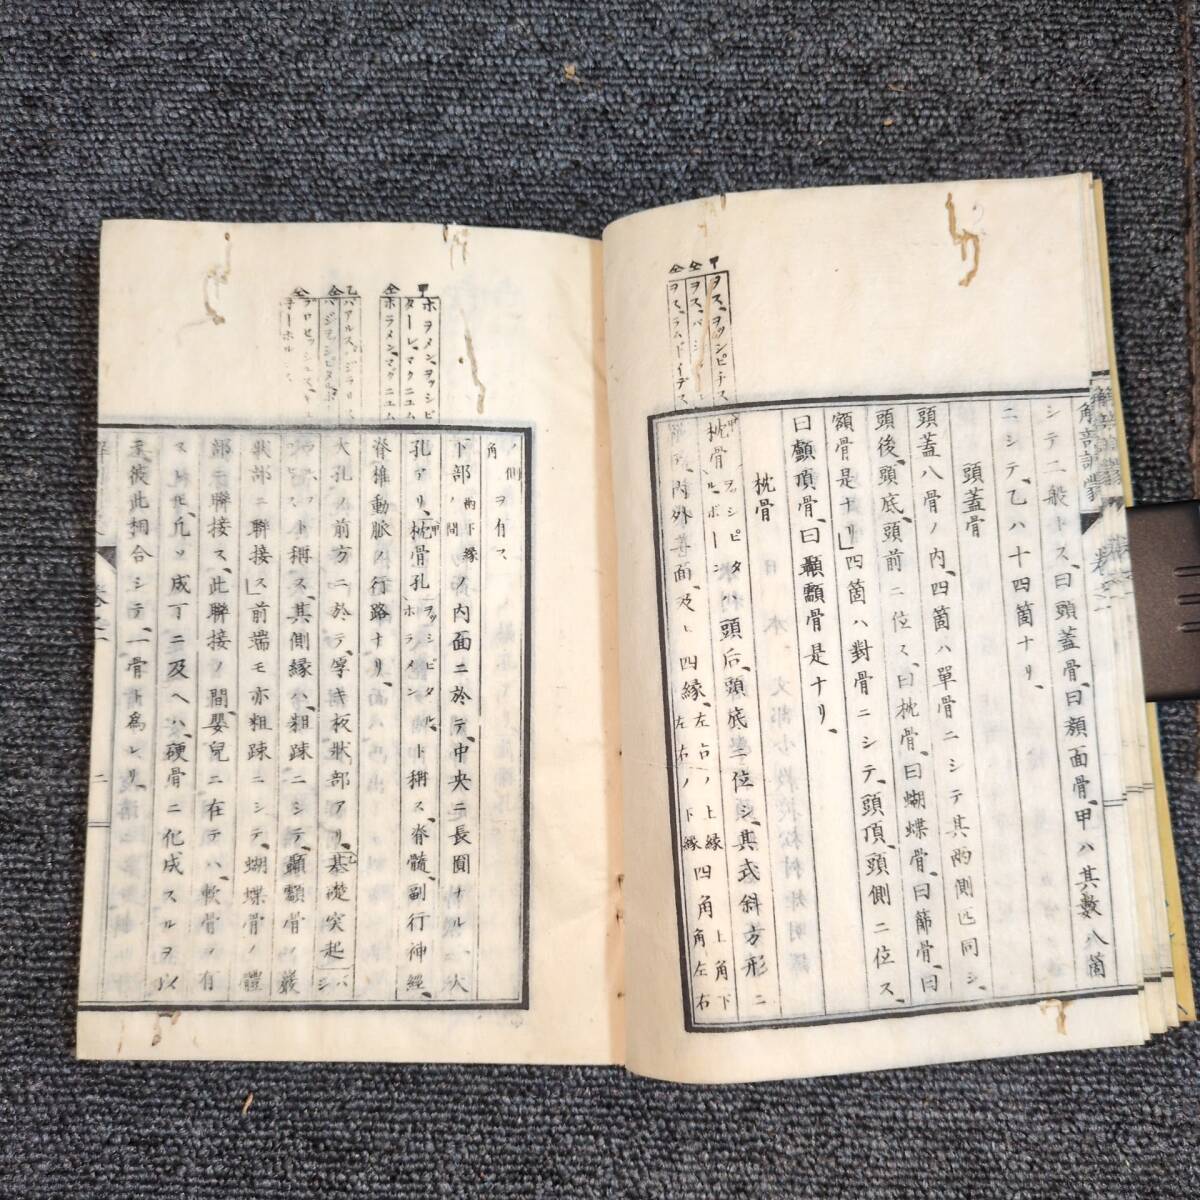 シテ二般トス、曰頭蓋骨、曰顔面骨、甲ハ其數八箇
ニシテ、乙ハ十四箇ナリ、
頭蓋骨
頭蓋八骨ノ内、四箇ハ單骨ニシテ其兩側匹同シ、
頭後、頭底、頭前ニ位ス、曰枕骨、曰蝴蝶骨、曰篩骨、曰
額骨是ナリ」四箇ハ對骨ニシテ、頭頂、頭側ニ位ス、
曰顱頂骨、曰顳顬骨是ナリ、
枕骨
枕骨ヲッシピタル、ボーンハ頭后、頭底ニ位シ、其式斜方形ニ
内外二面、及ヒ四縁、左右ノ上縁左右ノ下縁四角上角下角左右
ノ側角ヲ有ス
下部兩下縁ノ間ノ内面ニ於テ、中央ニ長圓ナル一大
孔アリ、枕骨孔ヲッシピタル、ホラメント稱ス、脊髓、副行神經、
脊椎動脈ノ行路ナリ、
大孔ノ前方ニ於テ、厚キ板狀部アリ、基礎突起バシ
ト稱ス、其側縁ハ、粗踈ニシテ、顳顬骨ノ巖
狀部ニ聯接ス」前端モ亦粗踈ニシテ、蝴蝶骨ノ體
部ニ聯接ス、此聯接ノ間、嬰兒ニ在テハ、軟骨ヲ有
ス
彼此相合シテ、一骨
甲 ヲス、ヲッシピチス
仝 ヲス、バシ
仝 ヲス、ラムドイデス
甲 ホヲメン、ヲッシピ
仝 ホラメン、マグニユム
解剖訓蒙
卷之二
二